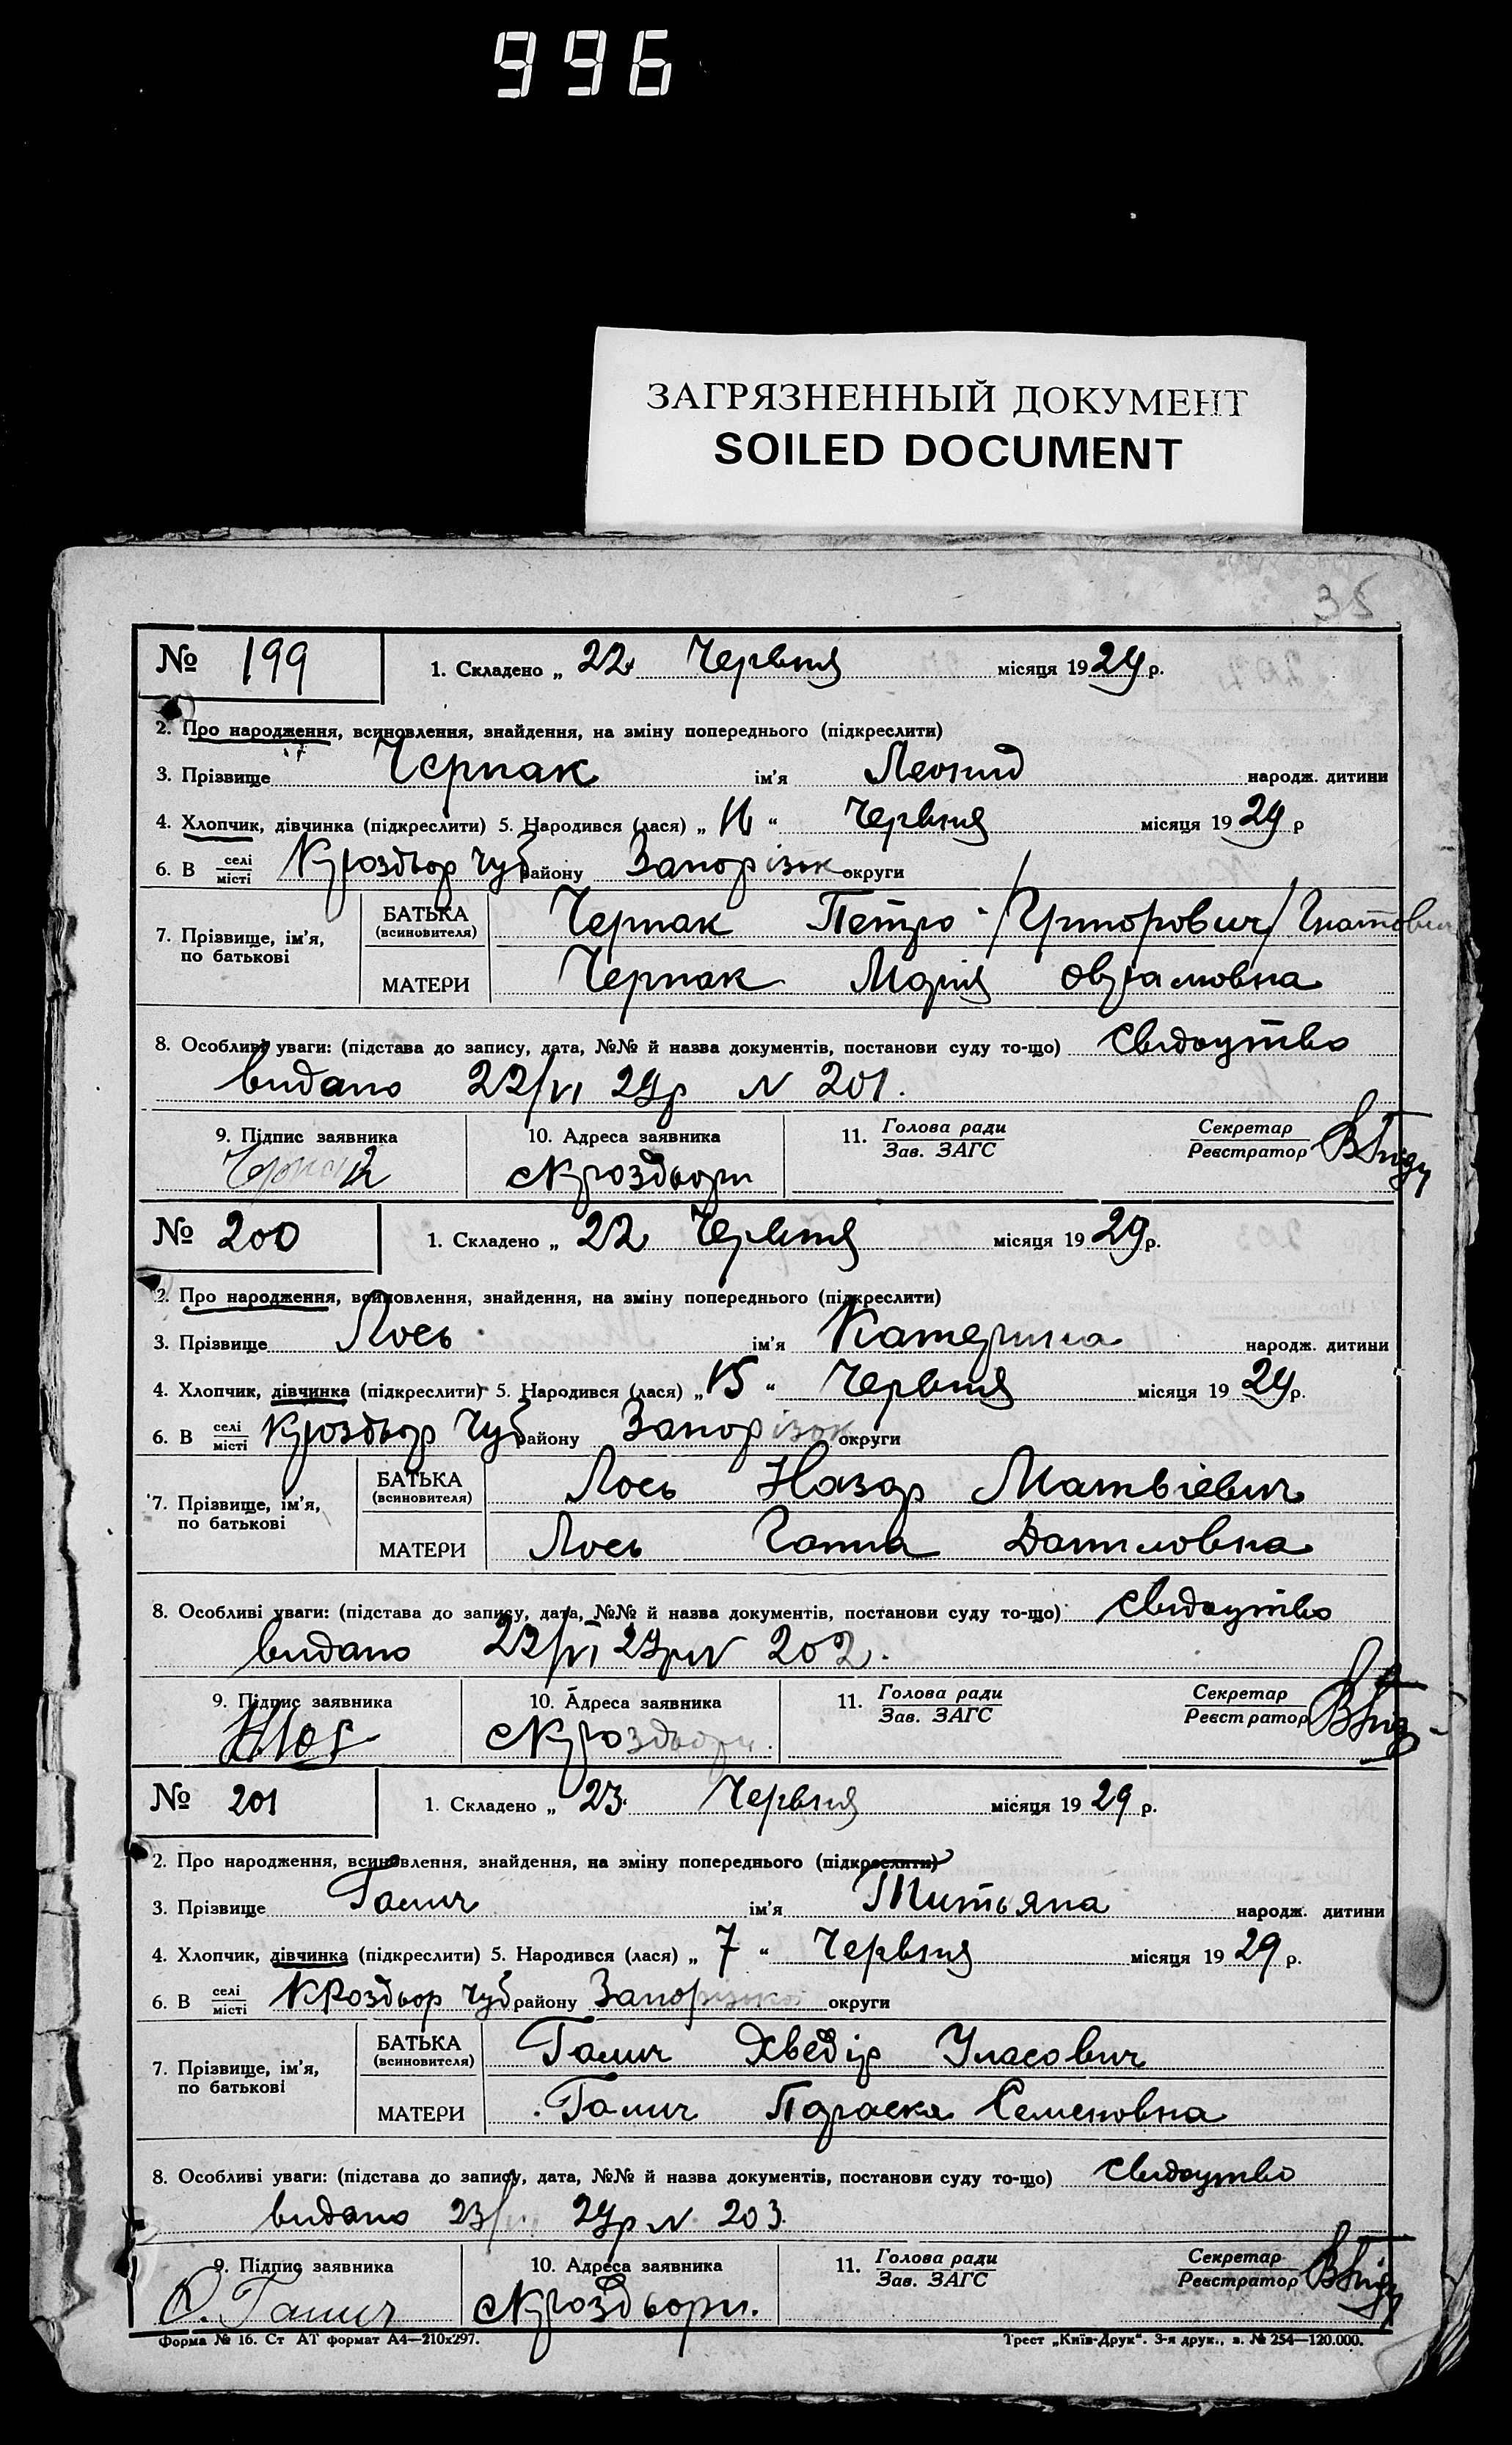 996
ЗАГРЯЗНЕННЫЙ ДОКУМЕНТ
SOILED DOCUMENT
35
№ 199 1. Складено „ 22 Червня місяця 1929 р.
2. Про народження, всиновлення, знайдення, на зміну попереднього (підкреслити)
3. Прізвище Черпак ім'я Леонид народж. дитини
4. Хлопчик, дівчинка (підкреслити) 5. Народився (лася) „ “ Червня місяця 1929 р
6. В селі місті Кроздвор Чуб району Запорізьк округи
7. Прізвище, ім'я, по батькові БАТЬКА (всиновителя) Черпак Петро /Григорович/ Гнатович
МАТЕРИ Черпак Марія
8. Особливі уваги: (підстава до запису, дата, №№ й назва документів, постанови суду то-що) свидоцтво
видано 22/VI 29р N 201.
9. Підпис заявника 10. Адреса заявника 11. Голова ради Зав. ЗАГС Секретар Реєстратор
с Кроздвори
№ 200 1. Складено „ 22 Червня місяця 1929 р.
2. Про народження, всиновлення, знайдення, на зміну попереднього (підкреслити)
3. Прізвище Лось ім'я Катерина народж. дитини
4. Хлопчик, дівчинка (підкреслити) 5. Народився (лася) „ 15 “ Червня місяця 1929 р.
6. В селі місті Кроздвор Чуб району Запорізьк округи
7. Прізвище, ім'я, по батькові БАТЬКА (всиновителя) Лось Назар Матвієвич
МАТЕРИ Лось Ганна Даниловна
8. Особливі уваги: (підстава до запису, дата, №№ й назва документів, постанови суду то-що) свидоцтво
видано 22/VI 29р N 202.
9. Підпис заявника 10. Адреса заявника 11. Голова ради Зав. ЗАГС Секретар Реєстратор
с Кроздвори.
№ 201 1. Складено „ 23 Червня місяця 1929 р.
2. Про народження, всиновлення, знайдення, на зміну попереднього (підкреслити)
3. Прізвище Галич ім'я Титьяна народж. дитини
4. Хлопчик, дівчинка (підкреслити) 5. Народився (лася) „ 7 “ Червня місяця 1929 р.
6. В селі місті Кроздвор Чуб району Запорізької округи
7. Прізвище, ім'я, по батькові БАТЬКА (всиновителя) Галич Хведір Уласович
МАТЕРИ Галич Параска Семеновна
8. Особливі уваги: (підстава до запису, дата, №№ й назва документів, постанови суду то-що) свидоцтво
видано 23/VI 29р N 203.
9. Підпис заявника 10. Адреса заявника 11. Голова ради Зав. ЗАГС Секретар Реєстратор
Галич с Кроздвори.
Форма № 16. Ст АТ формат А4—210x297. Трест „Київ-Друк“. 3-я друк., з. № 254—120.000.